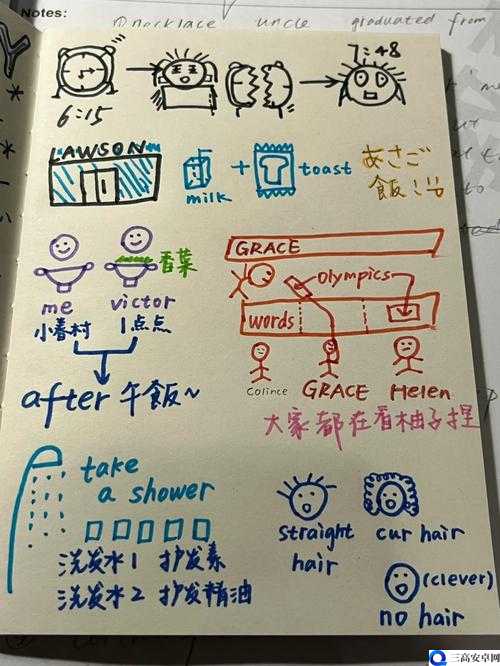 Notes:
necklace uncle graduated from
7:48
6:15
LAWSON
milk + toast
あさご
飯!!
GRACE
Olympics
words
香菜
me victor
小春村 1点点
Colince GRACE Helen
after 午飯~
大家都在看柚子捏
take
a shower
洗发水1 护发素
洗发水2 护发精油
straight
hair
cur hair
(clever)
no hair
三高安卓网